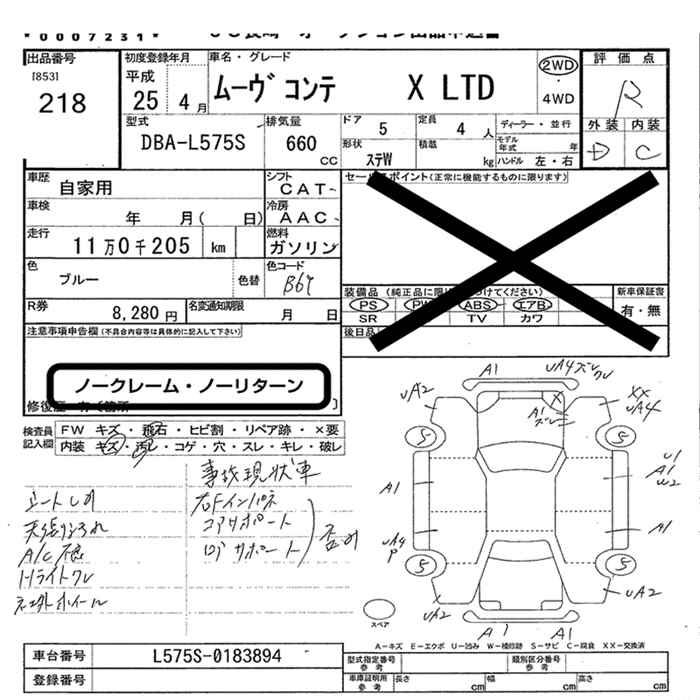 * 0 0 0 7 2 3 1 *
出品番号
[853]
218
初度登録年月
平成
25 年 4 月
車名・グレード
ムーヴ コンテ X LTD
2WD
・
4WD
評価点
R
外装 内装
D C
型式
DBA-L575S
排気量
660
cc
ドア
5
定員
4 人
ディーラー・並行
モデル年式 年
形状
ステW
積載
kg
ハンドル 左・右
車歴
自家用
シフト
CAT
車検
年 月( 日)
冷房
AAC
走行
11万0千205 km
燃料
ガソリン
色
ブルー
色替
色コード
B67
R券
8,280 円
名変通知期限
月 日
セールスポイント(正常に機能するものに限ります)
装備品(純正品に限り
つけてください)
PS PW ABS エアB
SR TV カワ
新車保証書
有・無
後日品
注意事項申告欄(不具合内容等は具体的に記入して下さい)
ノークレーム・ノーリターン
検査員記入欄
FW キズ・飛石・ヒビ割・リペア跡・×要
内装 キズ・汚レ・コゲ・穴・スレ・キレ・破レ
事故現状車
右Fインパネ
コアサポート
ロアサポート
歪み
天張り汚れ
A/C不良
Hライトクレ
社外ホイール
A1
UA4
UA2
A1
ズレ
XX
UA4
S
S
U1
A1
W2
A1
A1
UA4
P
S
S
UA2
UA2
A1
A1
スペア
A-キズ E-エクボ U-凹み W-補修跡 S-サビ C-腐食 XX-交換済
車台番号
L575S-0183894
登録番号
型式指定番号
参考
類別区分番号
参考
車庫証明用
参考
長さ cm
幅 cm
高さ cm